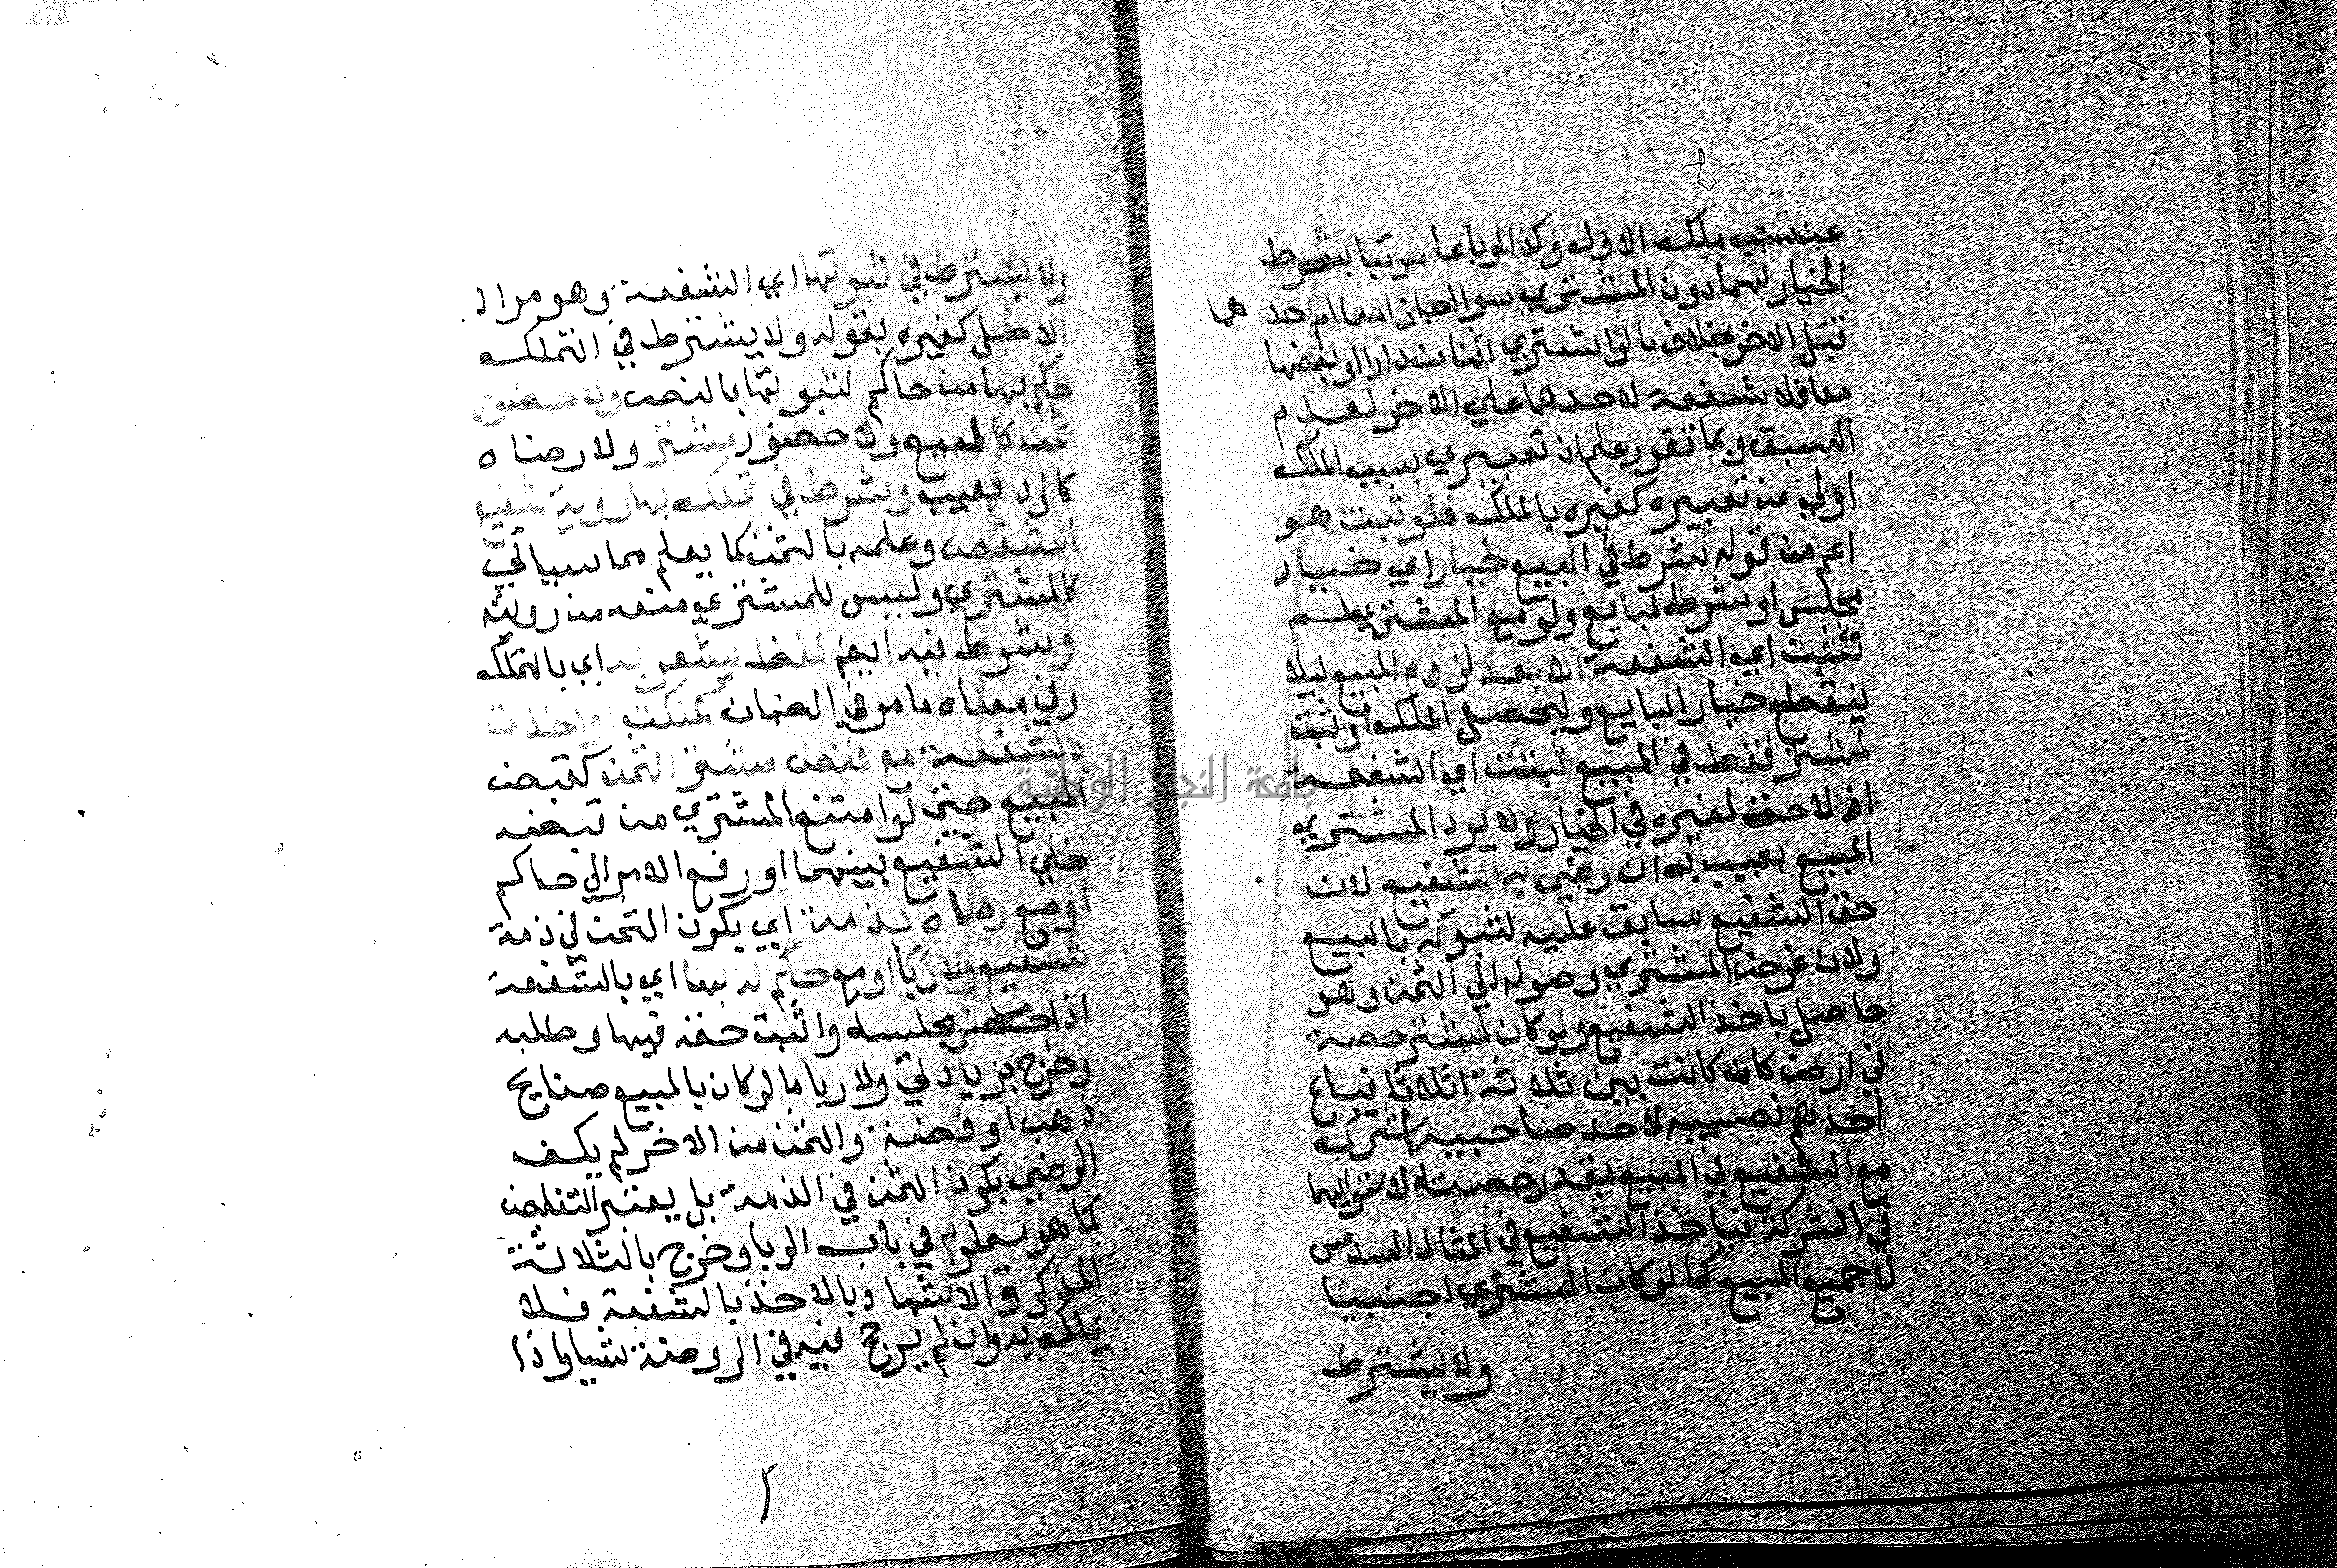 عن سبب ملك الاول وكذا لو باعا مرتبا بشرط
الخيار لهما دون المشتري سوا اجازا معا ام احدهما
قبل الاخر بخلاف ما لو اشتري اثنان دارا او بعضها
معا فلا شفعة لاحدهما علي الاخر لعدم
السبق وبما تقرر علم ان تعبيري بسبب الملك
اولي من تعبيره كغيره بالملك فلو ثبت هو
اعم من قوله شرط في البيع خيار اي خيار
مجلس او شرط لبايع ولو مع المشتري لم
تثبت اي الشفعة الا بعد لزوم المبيع ليلا
ينقطع خيار البايع وليحصل الملك او ثبت
لمشتر فقط في المبيع ثبتت اي الشفعة
اذ لا حق لغيره في الخيار ولا يرد المشتري
المبيع بعيب به ان رضي به الشفيع لان
حق الشفيع سابق عليه لثبوته بالبيع
ولان غرض المشتري وصوله الي الثمن وهو
حاصل باخذ الشفيع ولو كان لمشتر حصة
في ارض كان كانت بين ثلاثة اثلاثا فباع
احدهم نصيبه لاحد صاحبيه اشترك
مع الشفيع في المبيع بقدر حصته لاستوايهما
في الشركة فياخذ الشفيع في المثال السدس
لا جميع المبيع كما لو كان المشتري اجنبيا
ولا يشترط
ولا يشترط في ثبوتها اي الشفعة وهو مراد
الاصل كغيره بقوله ولا يشترط في التملك
حكم بها من حاكم لثبوتها بالنص ولا حضور
ثمن كالمبيع ولا حضور مشتر ولا رضاه
كالرد بعيب وشرط في تملك بها روية شفيع
الشقص وعلمه بالثمن كما يعلم مما سياتي
كالمشتري وليس للمشتري منعه من رويته
وشرط فيه ايضا لفظ يشعر به اي بالتملك
وفي معناه ما مر في الضمان كتملكت او اخذت
بالشفعة مع قبض مشتر الثمن كقبض
المبيع حتي لو امتنع المشتري من قبضه
خلي الشفيع بينهما او رفع الامر الي حاكم
او مع رضاه بذمة اي بكون الثمن في ذمة
شفيع ولا ربا او مع حكم له بها اي بالشفعة
اذا حضر مجلسه واثبت حقه فيها وطلبه
وخرج بزيادتي ولا ربا ما لو كان بالمبيع صفايح
ذهب او فضة والثمن من الاخر لم يكف
الرضي بكون الثمن في الذمة بل يعتبر التقابض
كما هو معلوم في باب الربا وخرج بالثلاثة
المذكورة الاشهاد بالاخذ بالشفعة فلا
يملك به وان لم يرجح فيه في الروضة شيا واذا
جامعة النجاح الوطنية